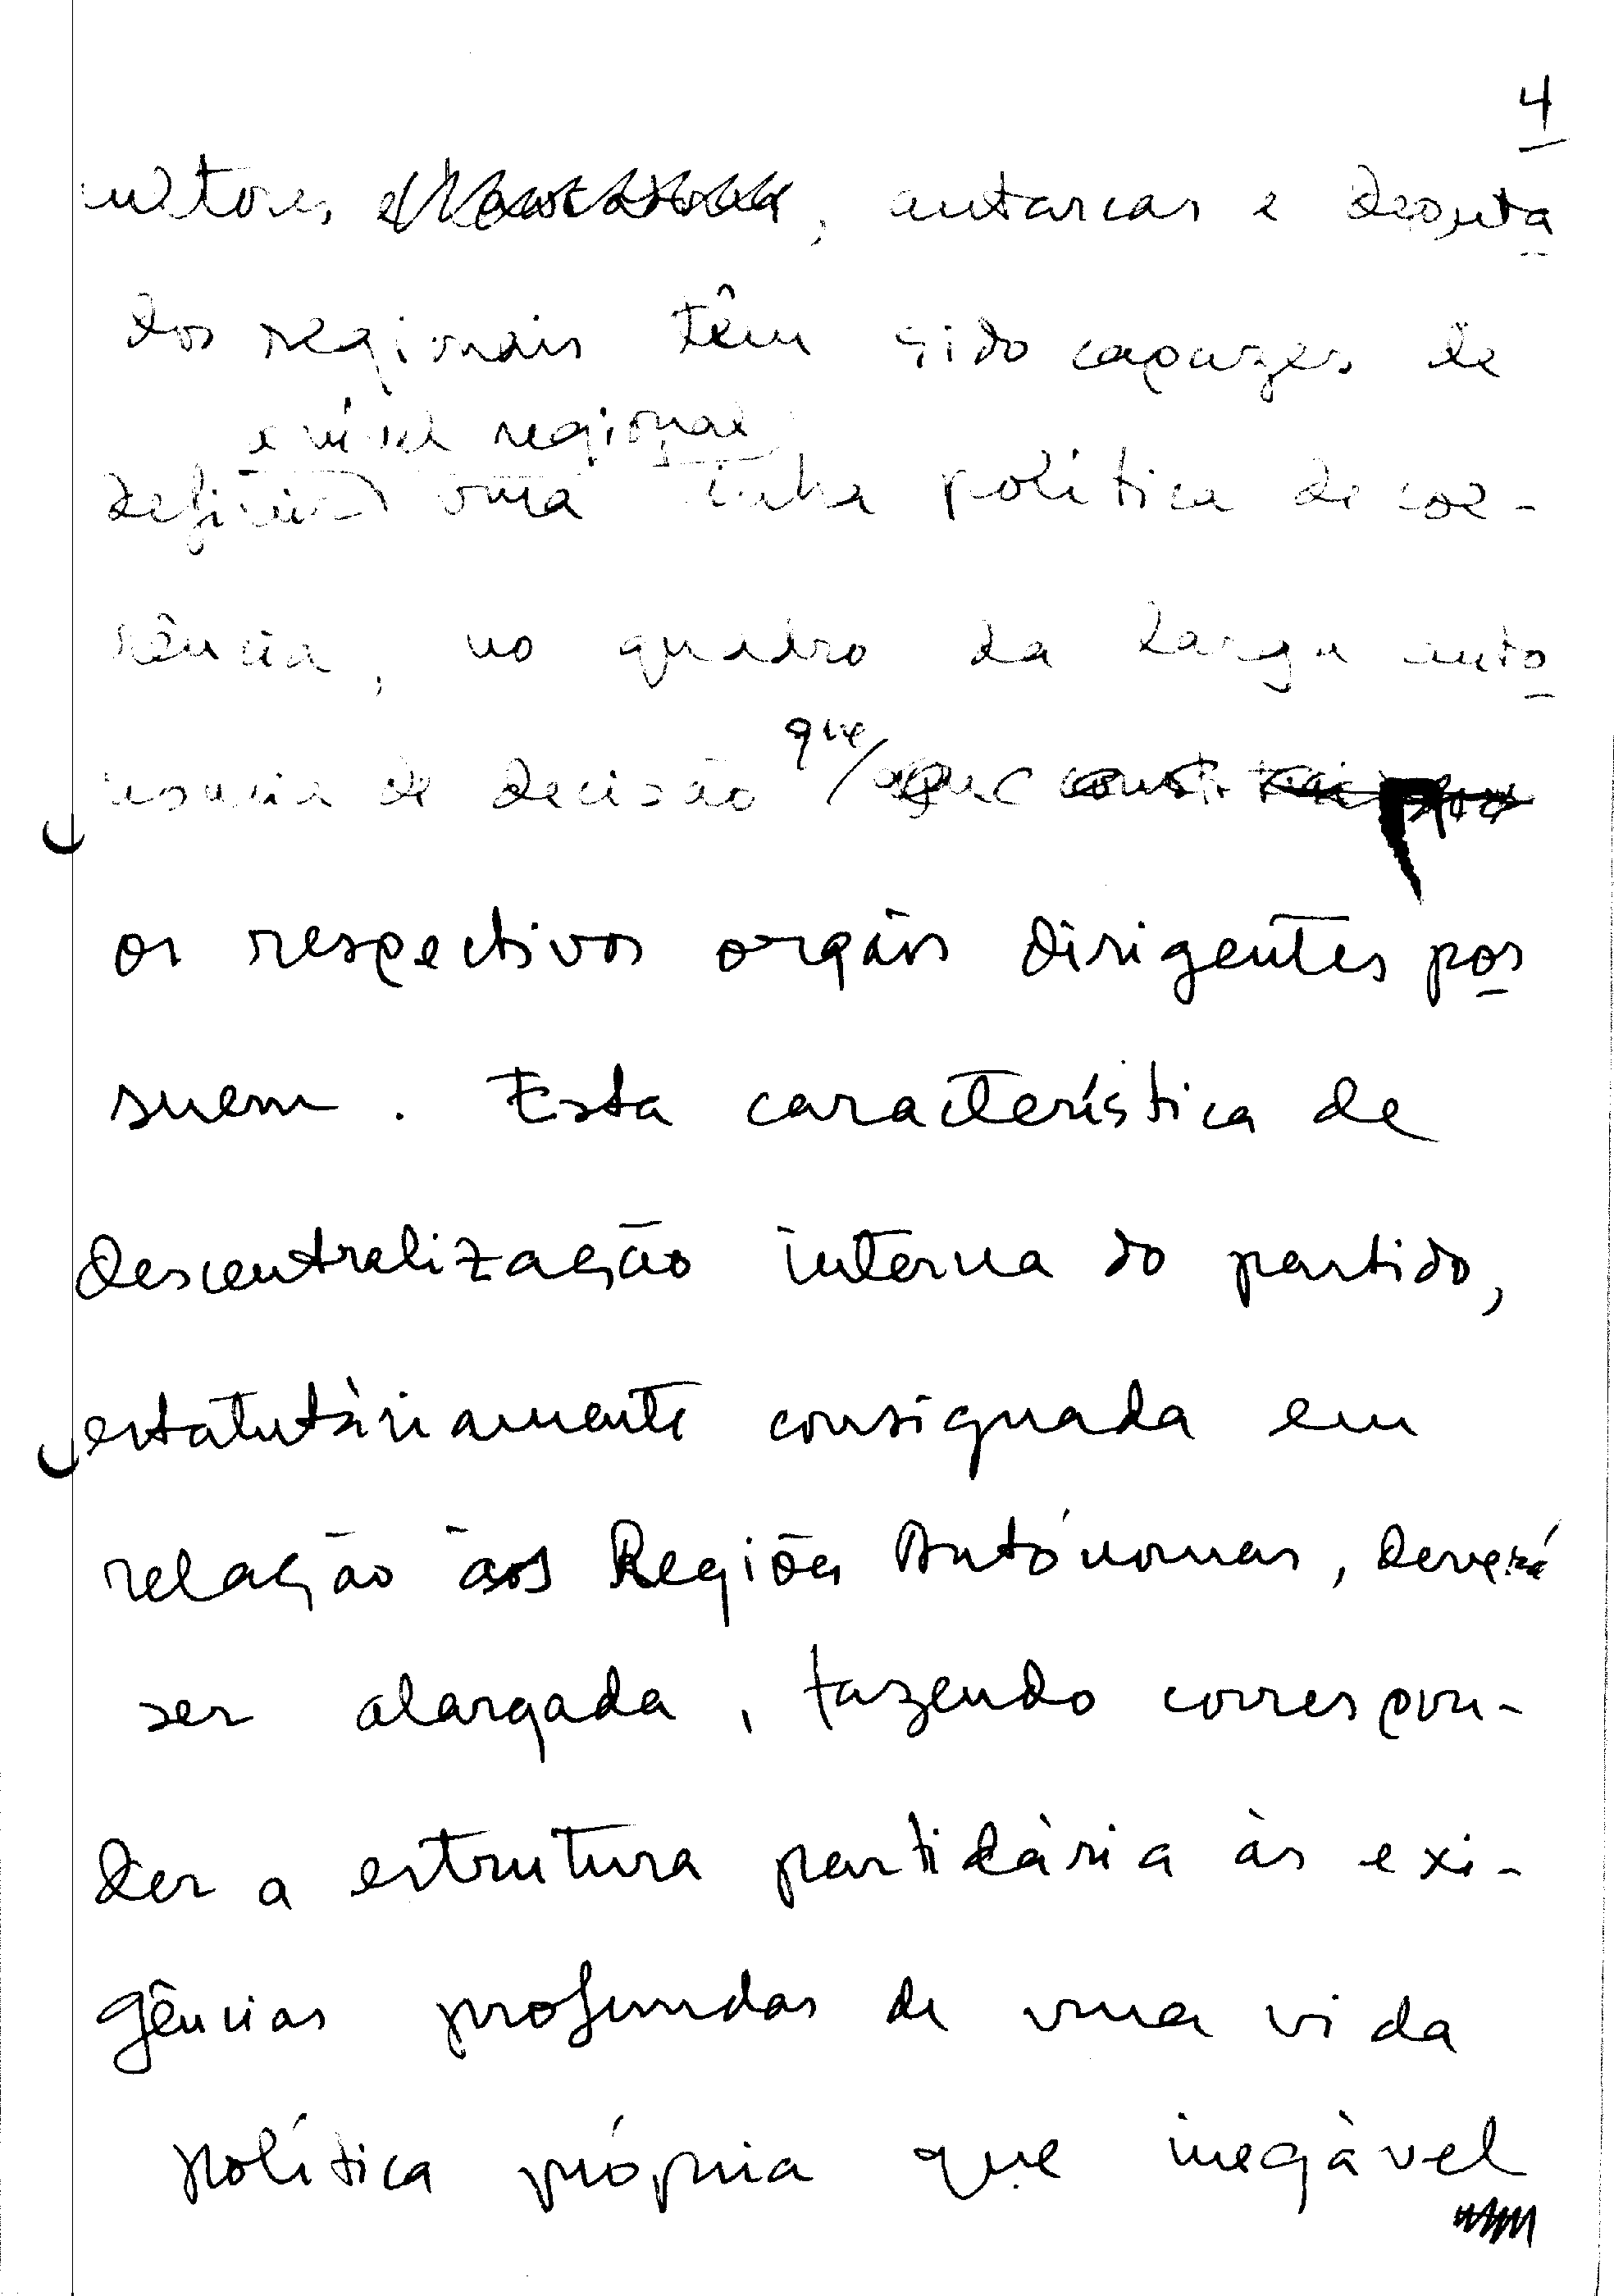 4
autarcas e deputa
dos regionais têm sido capazes de
a nível regional
definir uma linha política de coe-
rência, no quadro da larga auto
nomia de decisão que
os respectivos orgãos dirigentes pos
suem. Esta característica de
descentralização interna do partido,
estatutàriamente consignada em
relação às Regiões Autónomas, deverá
ser alargada, fazendo correspon-
der a estrutura partidària às exi-
gências profundas de uma vida
política própria que inegàvel